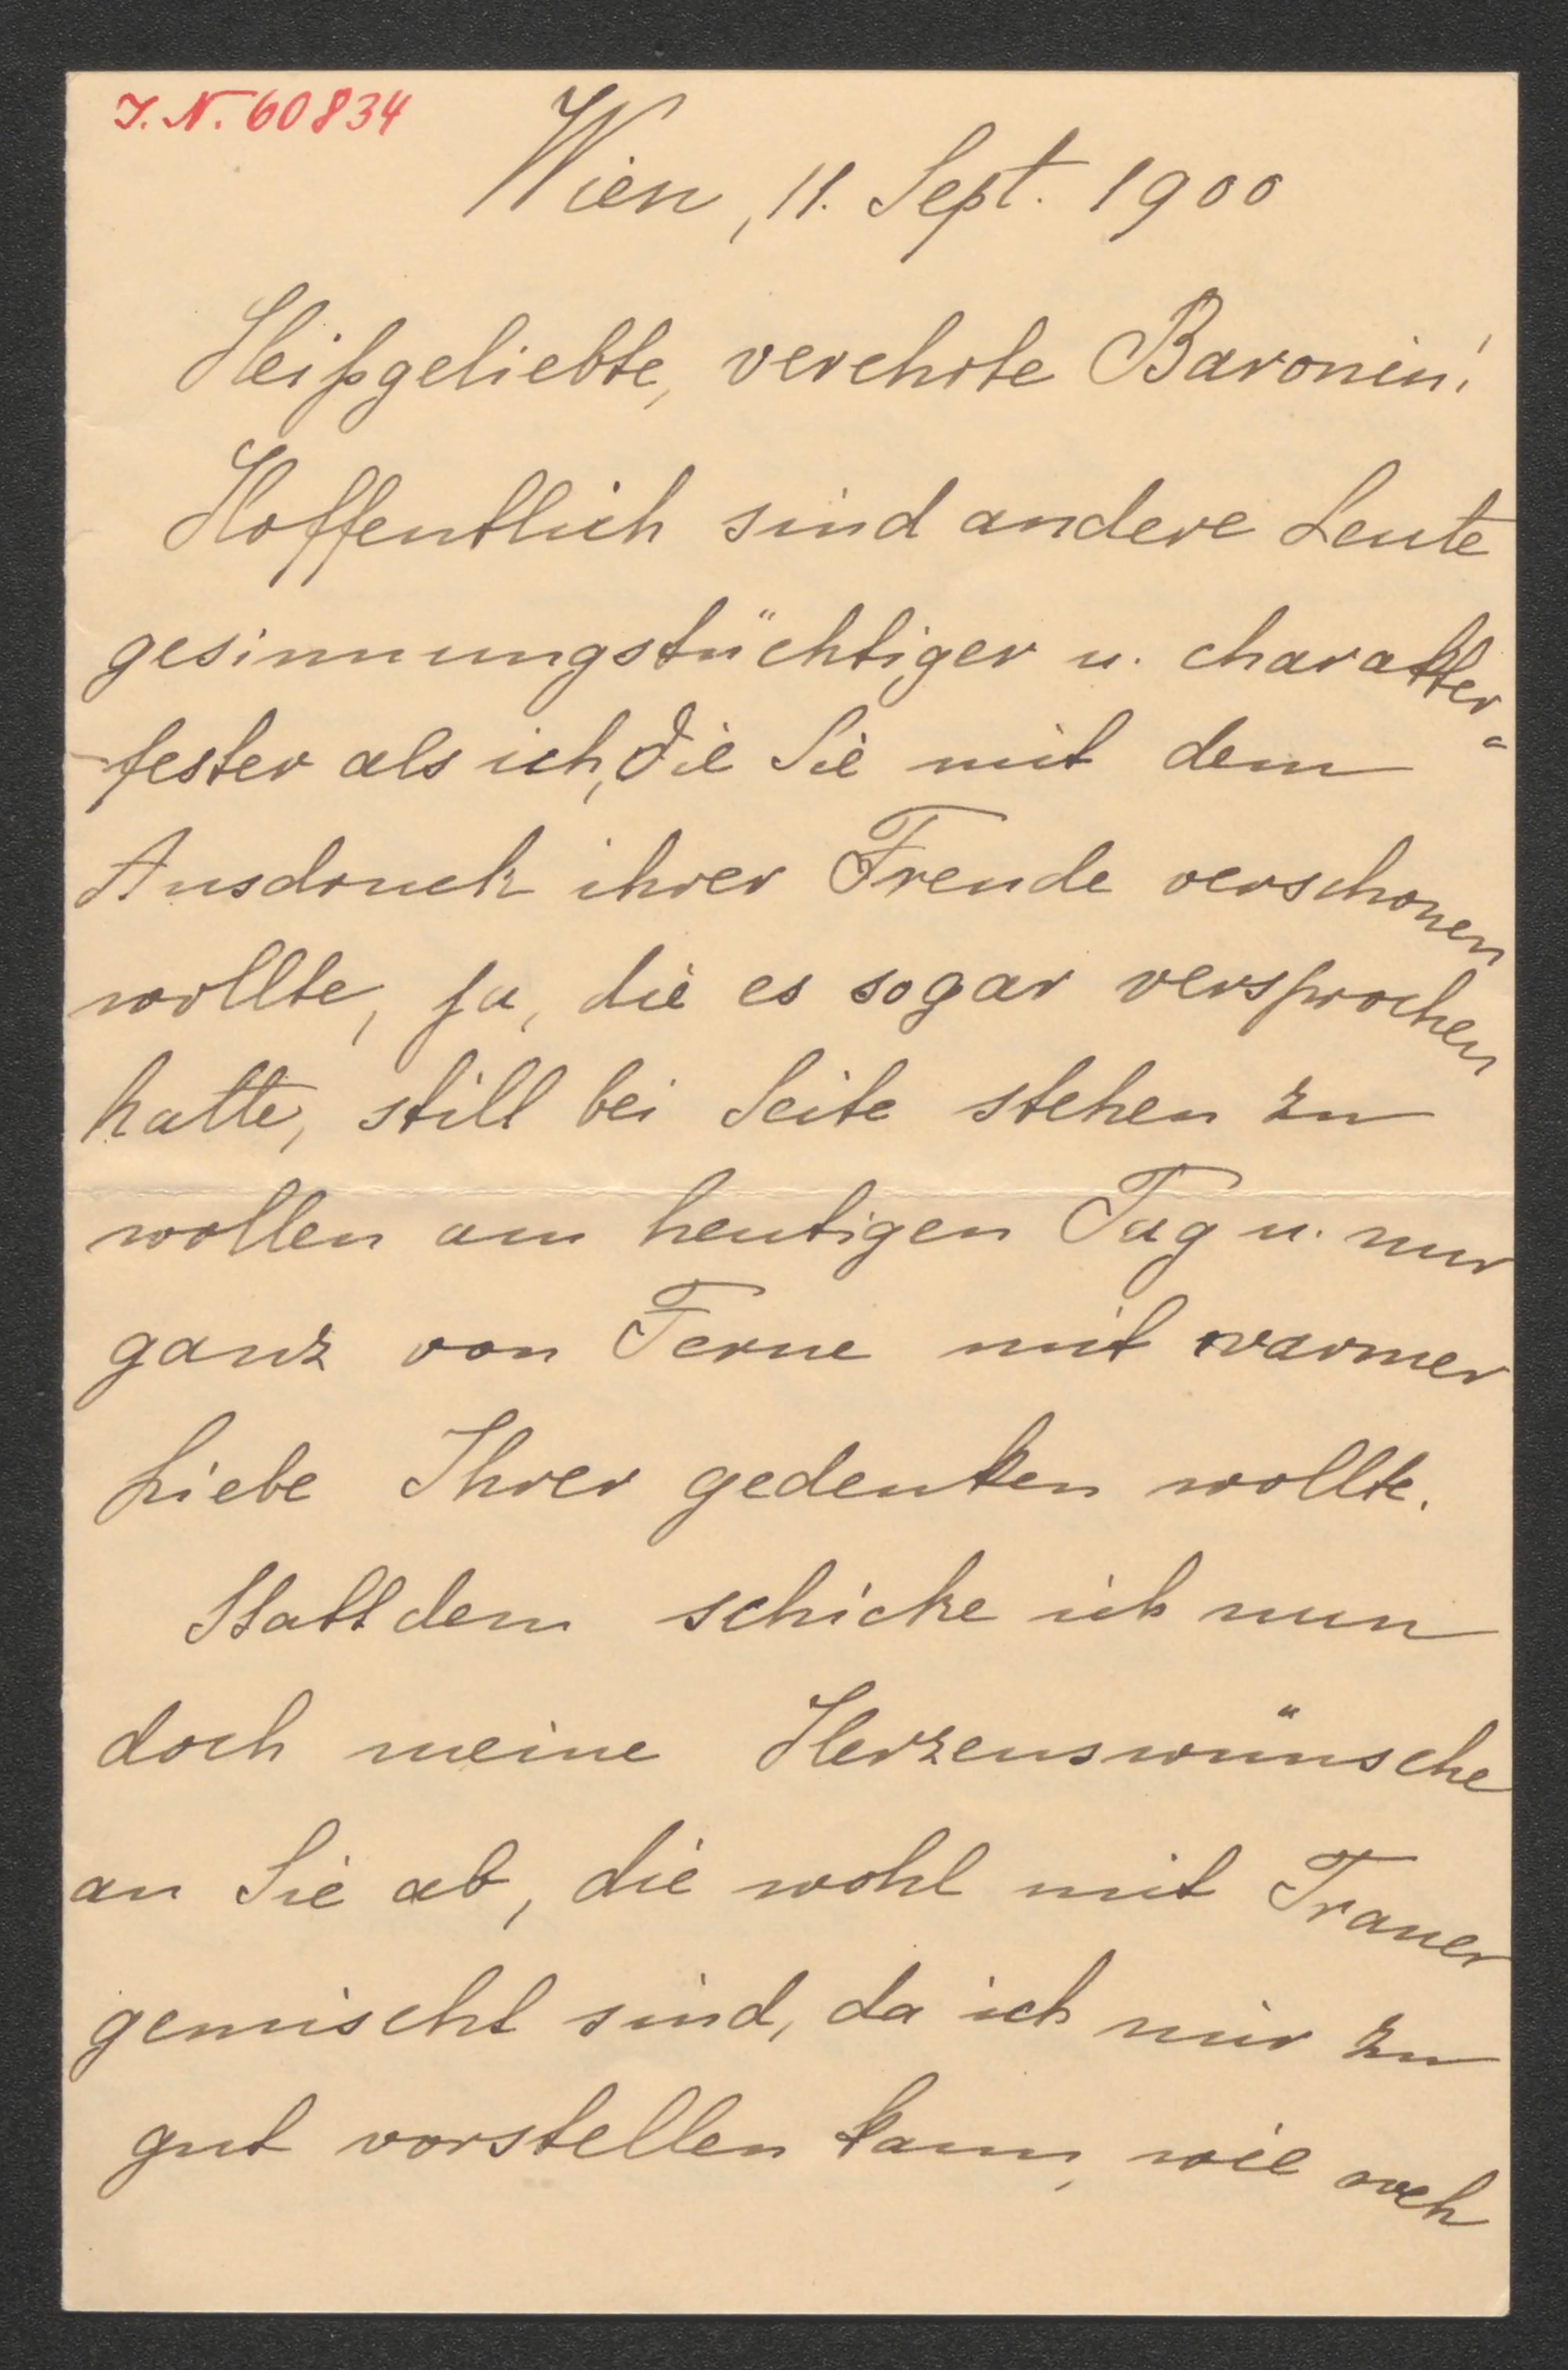 J. N. 60834
Wien, 11. Sept. 1900
Heißgeliebte, verehrte Baronin!
Hoffentlich sind andere Leute
gesinnungstüchtiger u. charakter-
fester als ich, die Sie mit dem
Ausdruck ihrer Freude verschonen
wollte, ja, die es sogar versprochen
hatte, still bei Seite stehen zu
wollen am heutigen Tag u. nur
ganz von Ferne mit warmer
Liebe Ihrer gedenken wollte.
Statt dem schicke ich nun
doch meine Herzenswünsche
an Sie ab, die wohl mit Trauer
gemischt sind, da ich mir zu
gut vorstellen kann, wie weh